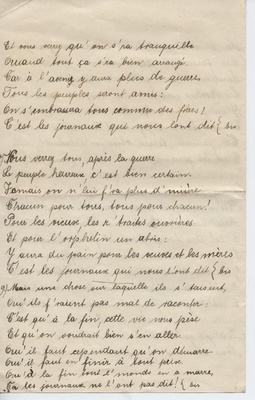 Et vous verrez qu'on s'ra tranquille
Quand tout ça s'ra bien arrangé
Car à l'avenir y aura plus de guerres
Tous les peuples seront amis:
On s'embrass'ra tous comme des frères!
C'est les journaux qui nous l'ont dit { bis
Vous verrez tous, après la guerre
Le peuple heureux c'est bien certain.
Jamais on n'lui f'ra plus d'misère
Chacun pour tous, tous pour chacun!
Pour les vieux, les r'traites ouvrières
Et pour l'orphelin un abri:
Y aura du pain pour les veuves et les mères
C'est les journaux qui nous l'ont dit { bis
Mais une chose sur laquelle ils s'taisent,
Qu'ils f'raient pas mal de raconter:
C'est qu'à la fin, cette vie nous pèse
Et qu'on voudrait bien s'en aller.
Qu'il faut cependant qu'on démarre
Qu'il faut en finir à tout prix
Qu'à la fin tout l'monde en a marre,
Ça les journaux ne l'ont pas dit! { bis